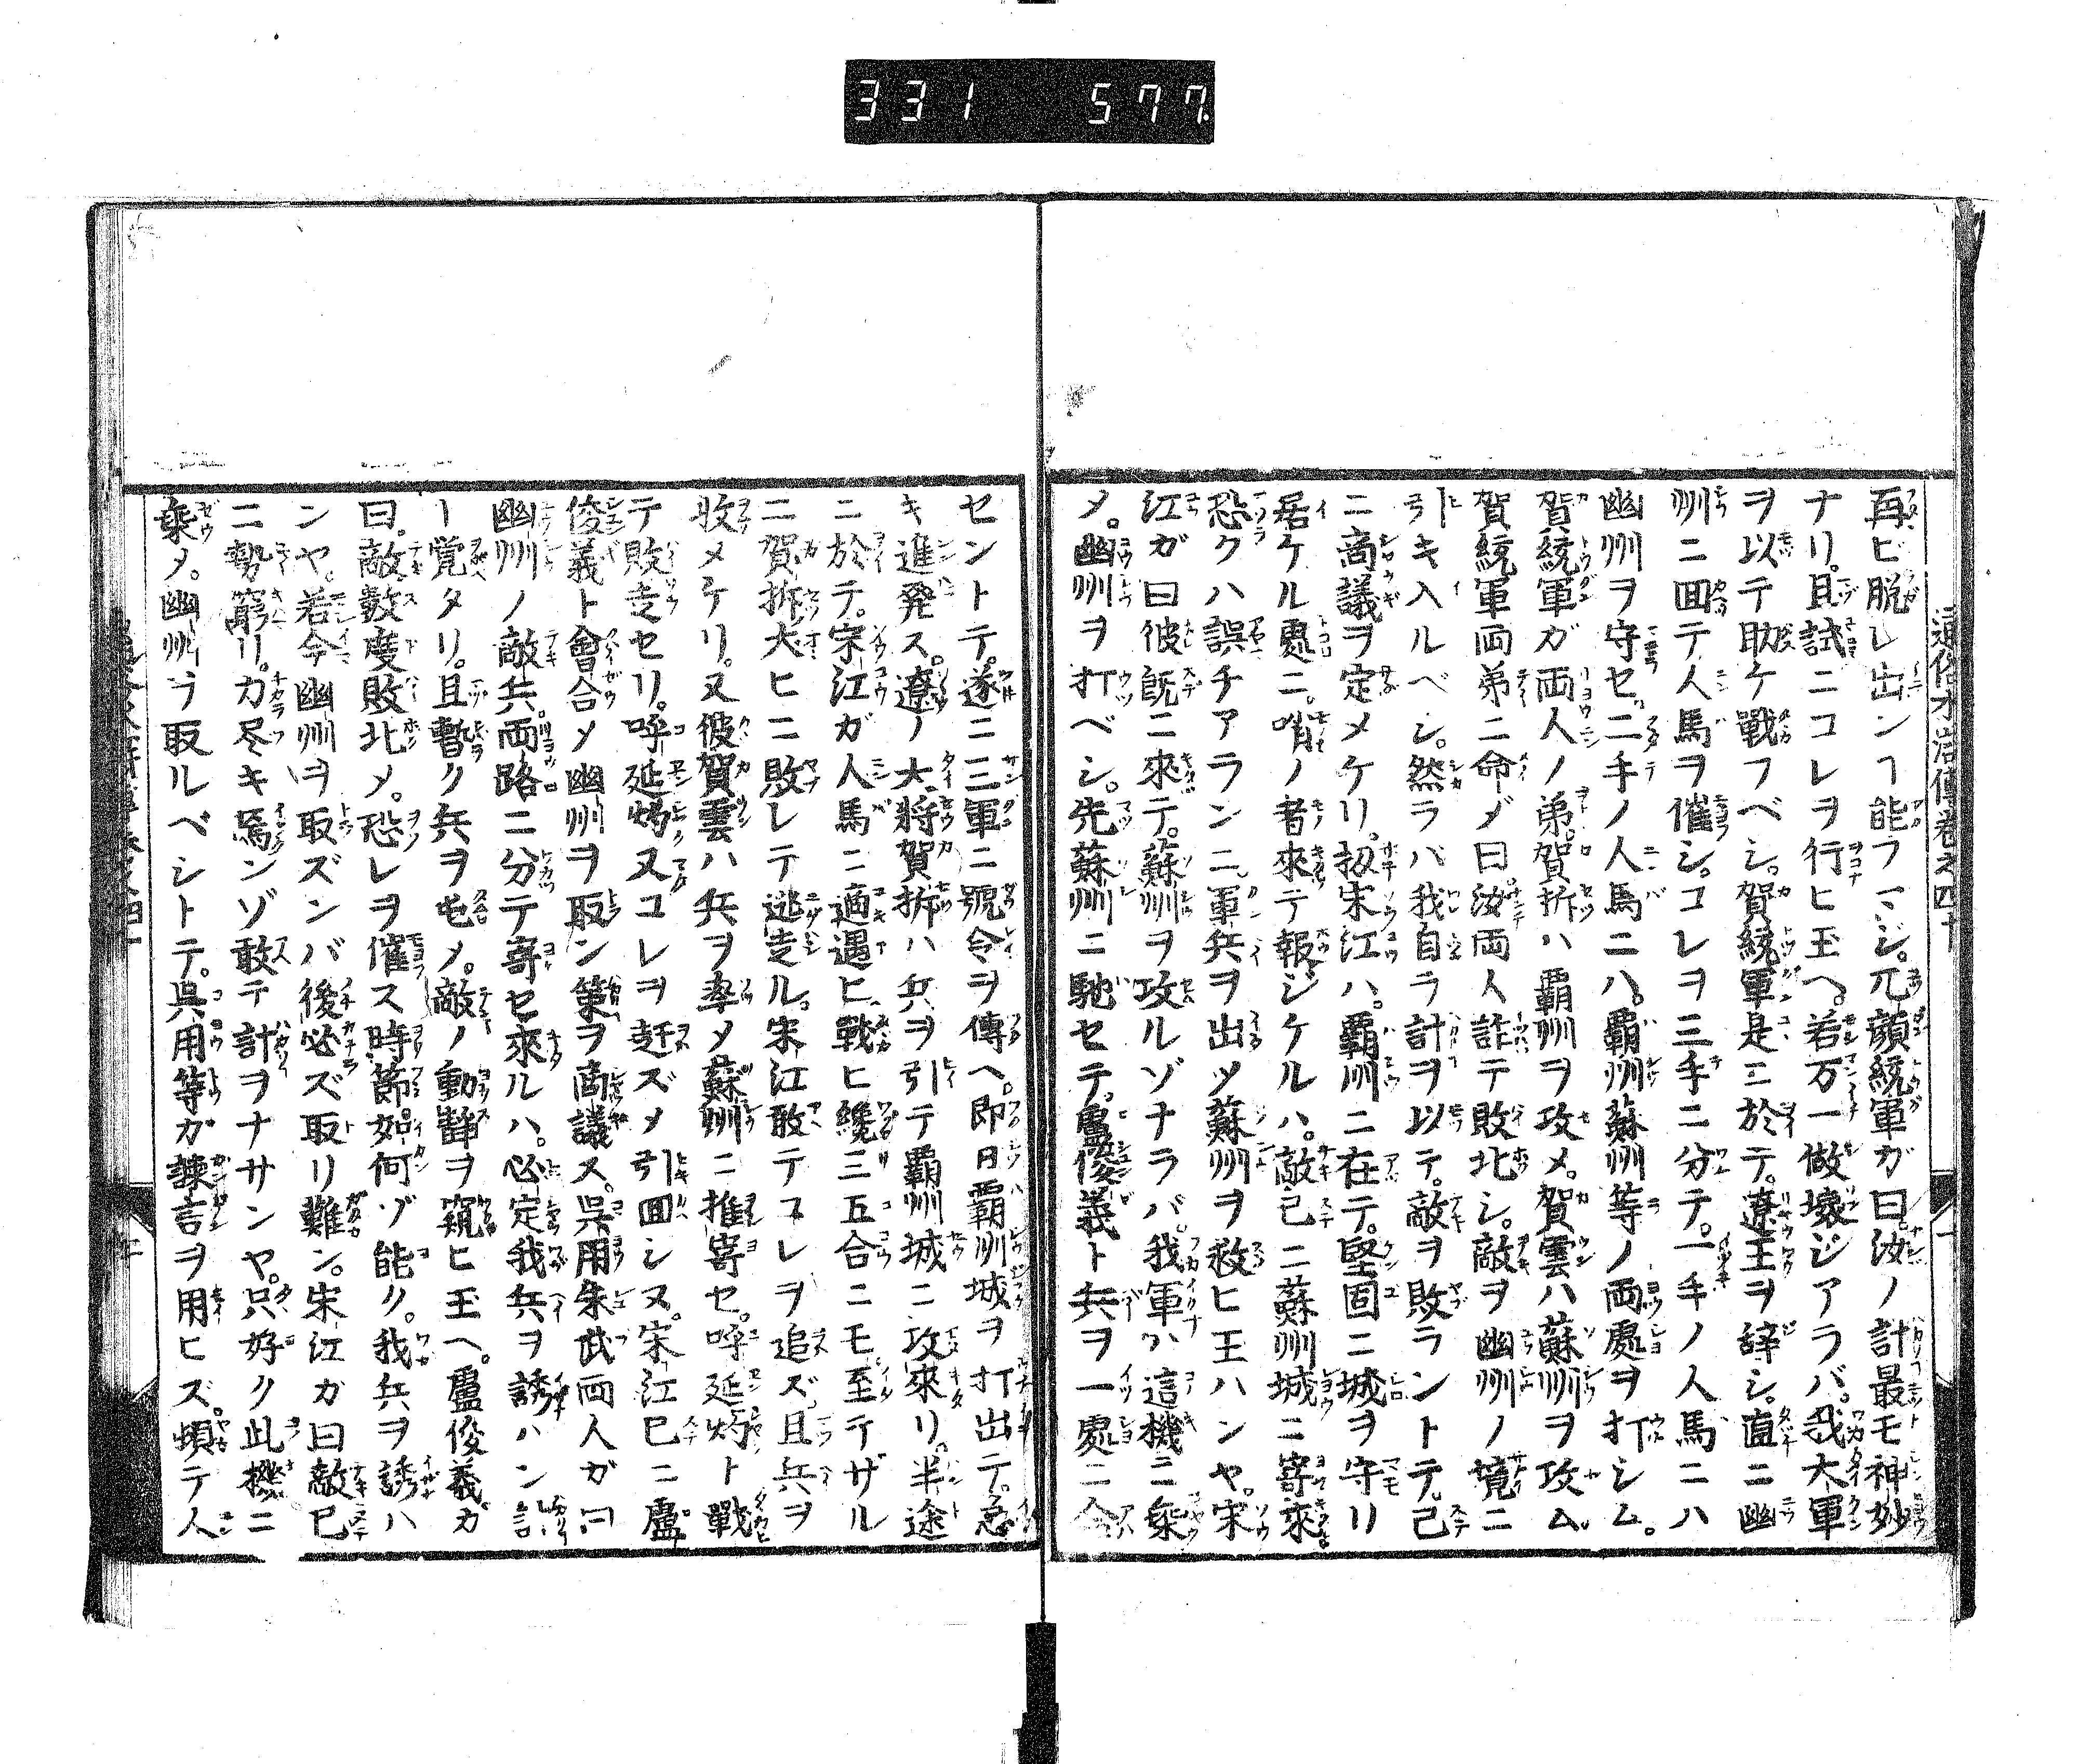 331 577
通俗水滸傳卷之四十
再ビ脱レ出ンヿ能フマジ。兀顔統軍ガ曰。汝ノ計最モ神妙
ナリ。且試ニコレヲ行ヒ玉ヘ。若万一做壞ジアラバ。我大軍
ヲ以テ助ケ戰フベシ。賀統軍是ニ於テ。遼王ヲ辞シ。直ニ幽
州ニ囬テ人馬ヲ催シ。コレヲ三手ニ分テ。一手ノ人馬ニハ
幽州ヲ守セ。二手ノ人馬ニハ。覇州蘇州等ノ両處ヲ打シム。
賀統軍ガ両人ノ弟。賀拆ハ覇州ヲ攻メ。賀雲ハ蘇州ヲ攻ム。
賀統軍両弟ニ命ジ曰汝両人詐テ敗北シ。敵ヲ幽州ノ境ニ
引キ入ルベシ。然ラハ我自ラ計ヲ以テ。敵ヲ敗ラントテ。已
ニ商議ヲ定メケリ。扨宋江ハ。覇州ニ在テ。堅固ニ城ヲ守リ
居ケル處ニ。哨ノ者來テ報ジケルハ。敵已ニ蘇州城ニ寄來。
恐クハ誤チアランニ。軍兵ヲ出ツ蘇州ヲ救ヒ玉ハンヤ。宋
江ガ曰彼既ニ來テ。蘇州ヲ攻ルゾナラバ。我軍ハ這機ニ乗
メ。幽州ヲ打ベシ。先蘇州ニ馳セテ。盧俊義ト兵ヲ一處ニ合
セントテ。遂ニ三軍ニ號令ヲ傳ヘ。即日覇州城ヲ打出テ。急
キ進発ス。遼ノ大將賀拆ハ兵ヲ引テ覇州城ニ攻來リ。半途
ニ於テ。宋江ガ人馬ニ適遇ヒ。戰ヒ纔三五合ニモ至テザル
ニ賀拆大ヒニ敗レテ逃走ル。宋江敢テコレヲ追ズ。且兵ヲ
收メケリ。又彼賀雲ハ兵ヲ率メ蘇州ニ推寄セ。呼延灼ト戰
テ敗走セリ。呼延灼又コレヲ赶ズメ引囬シヌ。宋江已ニ盧
俊義ト會合メ幽州ヲ取ン策ヲ商議ス。呉用朱武両人ガ曰
幽州ノ敵兵。両路ニ分テ寄セ來ルハ。必定我兵ヲ誘ハン計
ト覚タリ。且暫ク兵ヲ屯メ。敵ノ動靜ヲ窺ヒ玉ヘ。盧俊義ガ
曰。敵數度敗北メ。恐レヲ催ス時節。如何ゾ能ク。我兵ヲ誘ハ
ンヤ。若今幽州ヲ取ズンバ後必ズ取リ難ン。宋江ガ曰敵已
ニ勢窮リ。力尽キ焉ンゾ敢テ計ヲナサンヤ。只好ク此機ニ
乗メ。幽州ヲ取ルベシトテ。呉用等ガ諫言ヲ用ヒズ。頓テ人